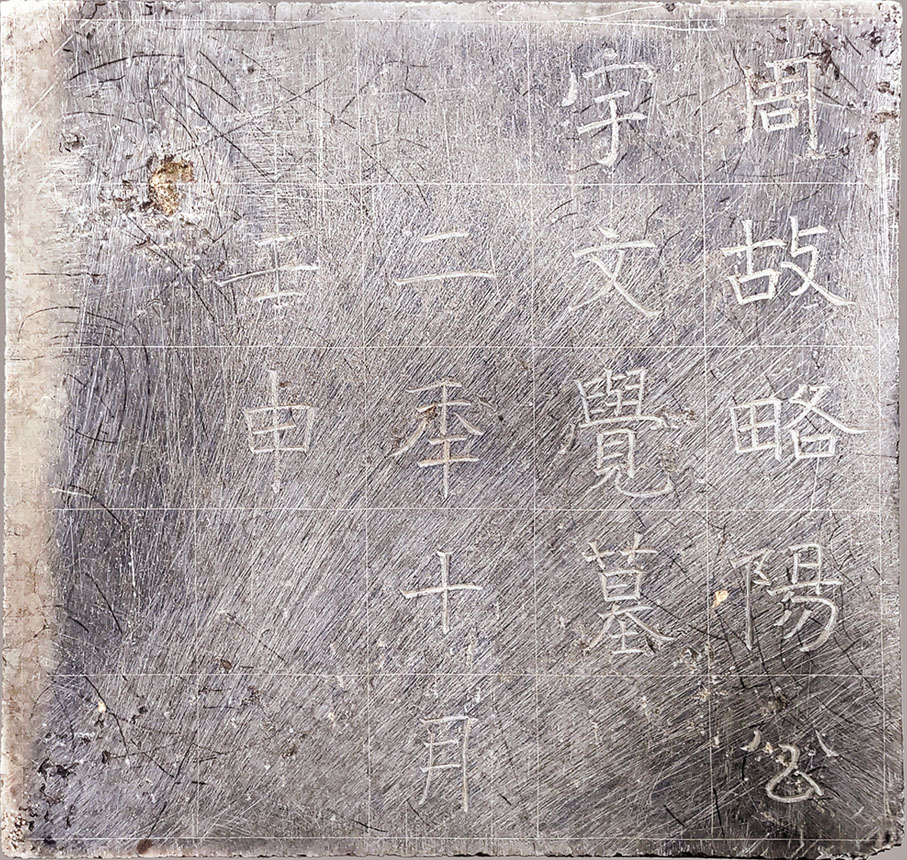 周故略陽公
宇文覺墓
二秊十月
壬申